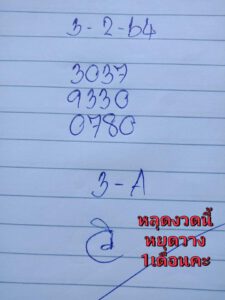 3-2-64
3037
9330
0780
3-A
หลุดงวดนี้
หยุดวาง
1เดือนคะ